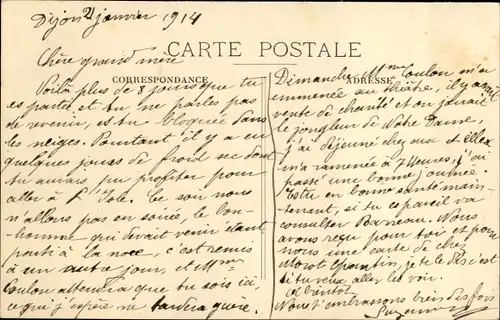 Dijon 21 janvier 1914
CARTE POSTALE
CORRESPONDANCE
ADRESSE
Chère grand'mère
Voilà plus de 8 jours que tu
es partie et tu ne parles pas
de revenir, es tu bloquée dans
les neiges. Pourtant il y a eu
quelques jours de froid sec dont
tu aurais pu profiter pour
aller à Dole. Ce soir nous
n'allons pas en soirée, le bon-
homme qui devait venir étant
parti à la noce, c'est remis
à un autre jour, et Mme
Coulon attendra que tu sois ici,
ce qui j'espère ne tardera guère.
Dimanche, Mme Coulon m'a
emmenée au théâtre, il y avait
vente de charité et on jouait
le jongleur de Notre Dame,
j'ai déjeuné chez eux et elle
m'a ramenée à 7 heures, j'ai
passé une bonne journée.
Es tu en bonne santé main-
tenant, si tu es pareil va
consulter Nous
avons reçu pour toi et pour
nous une carte de chez
je te le dis c'est
si tu veux aller les voir.
A bientôt
Nous t'embrassons bien des fois
Suzanne